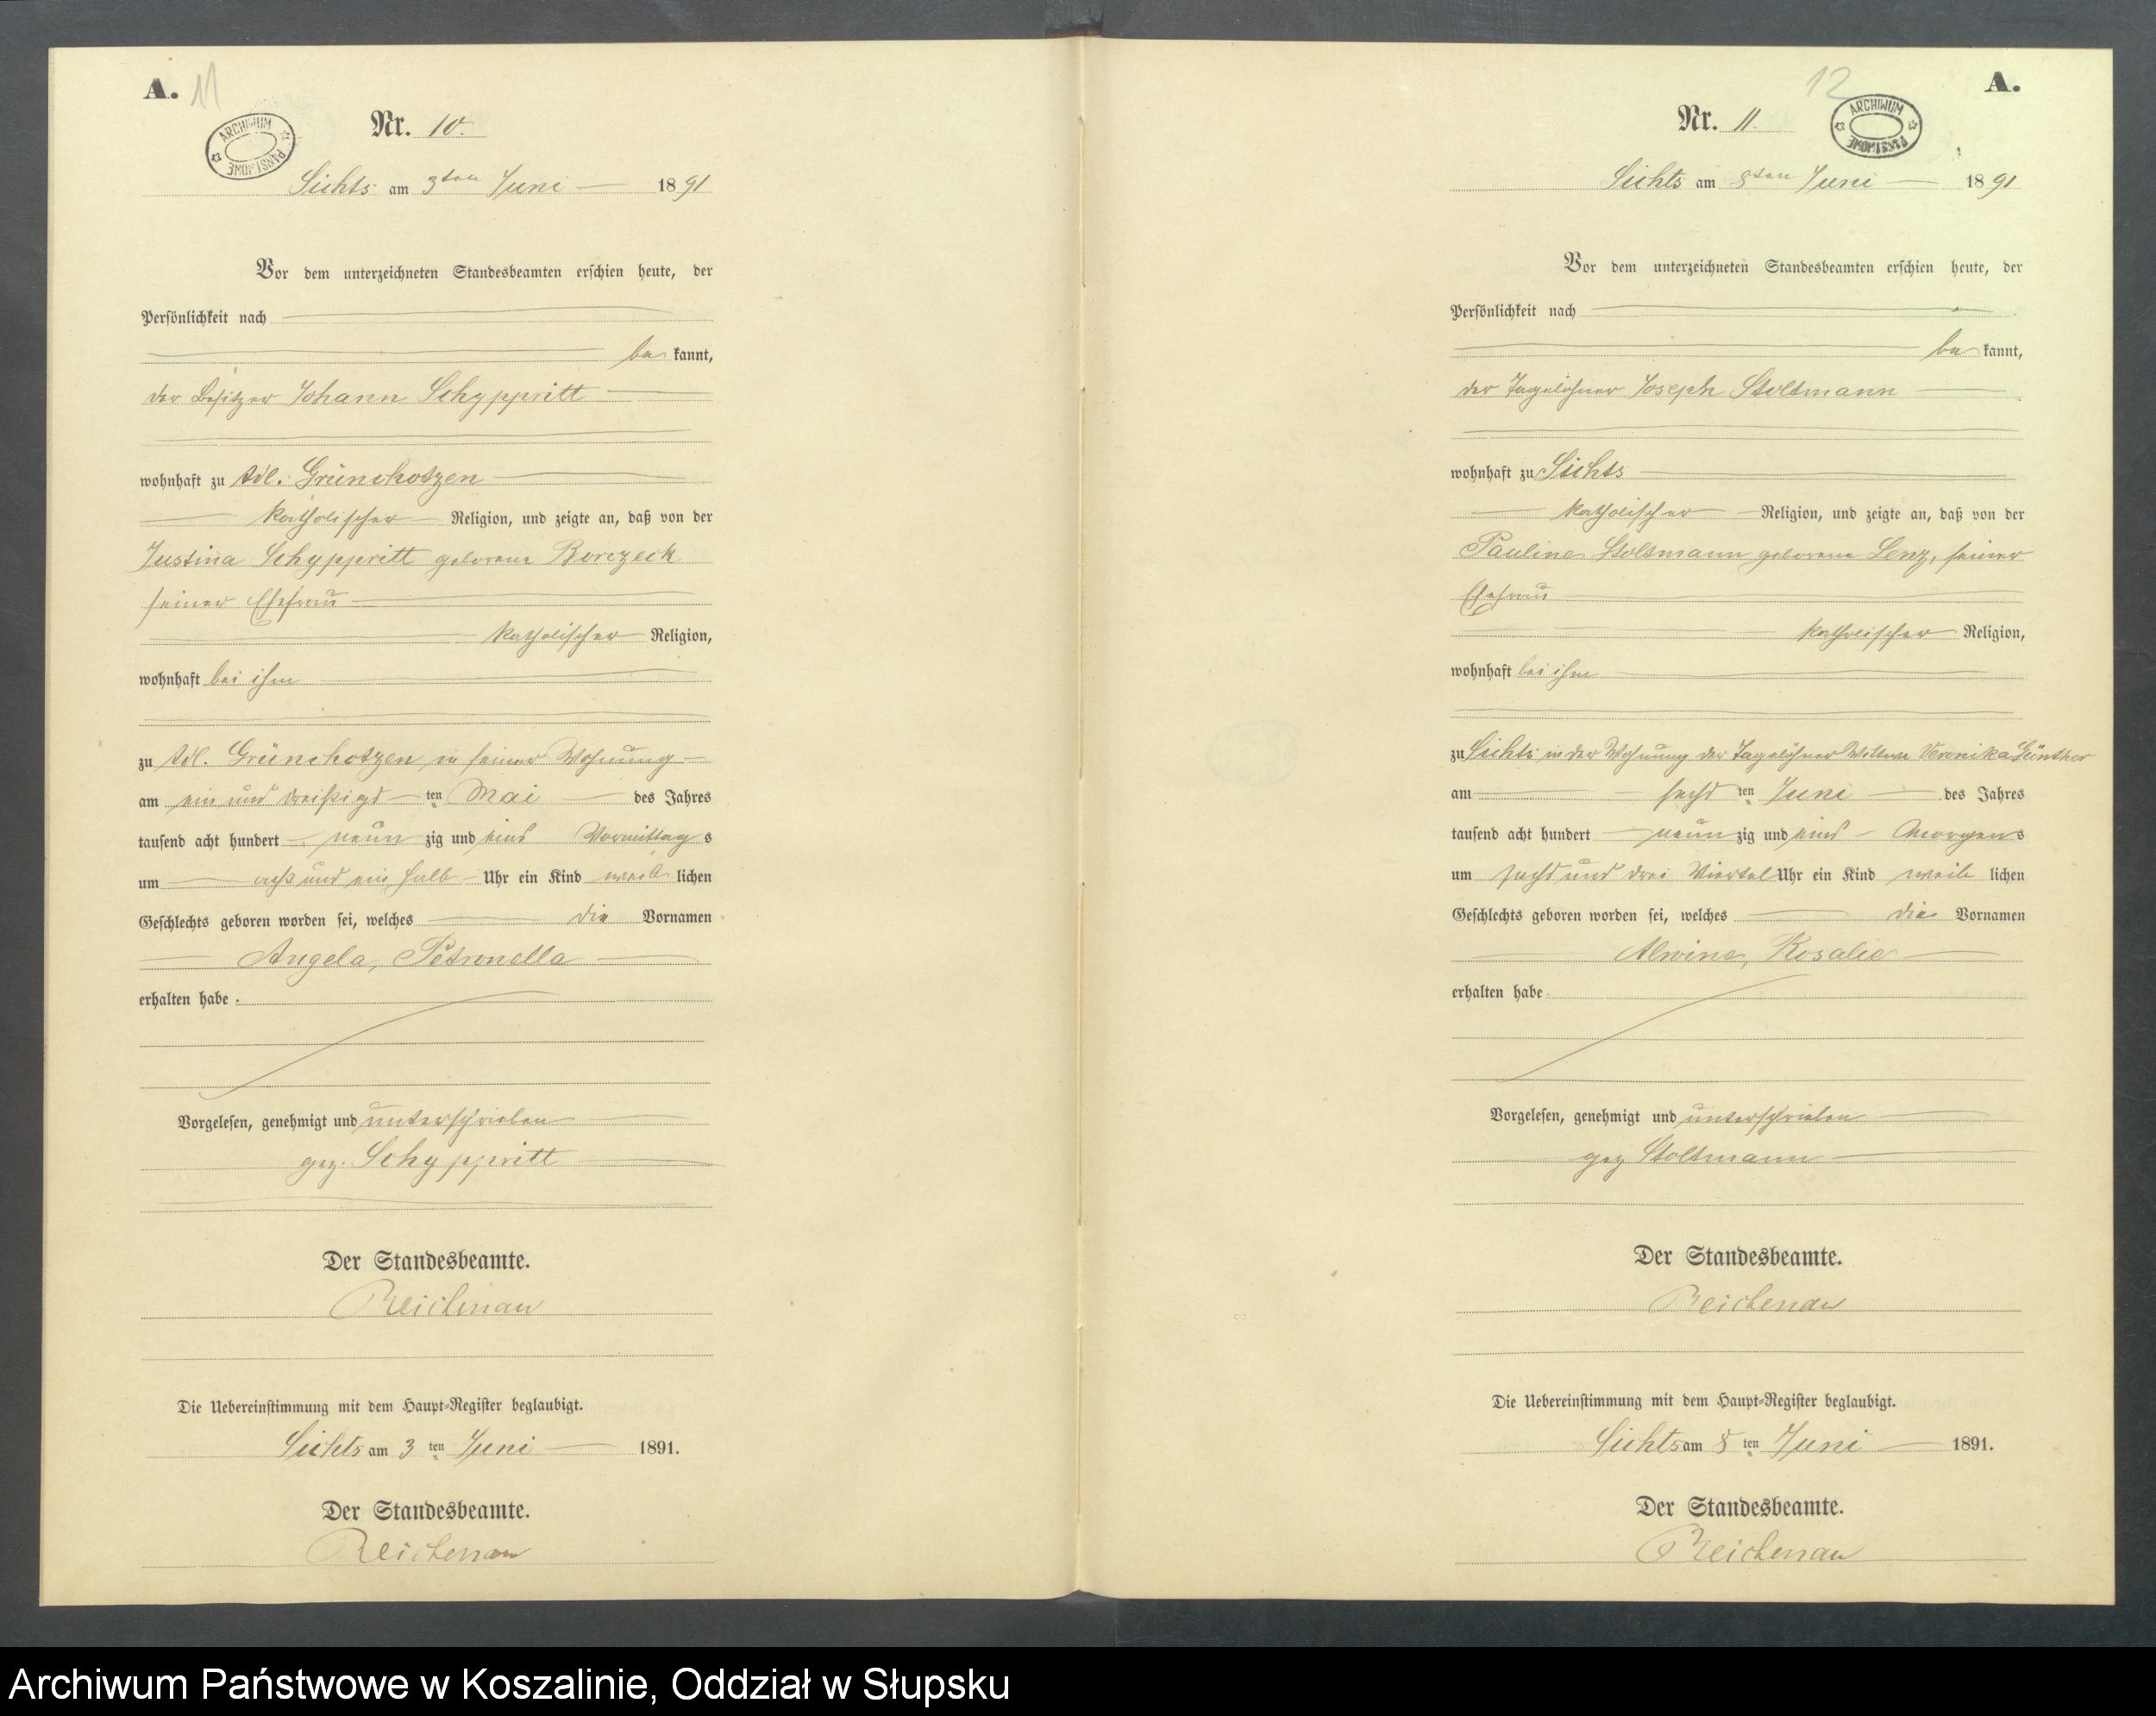 A. 11
ARCHIWUM PAŃSTWOWE
Nr. 10.
Sichts am 3ten Juni 1891
Vor dem unterzeichneten Standesbeamten erschien heute, der
Persönlichkeit nach
be kannt,
der Besitzer Johann Schyppritt
wohnhaft zu Adl. Grünchotzen
katholischer Religion, und zeigte an, daß von der
Justina Schyppritt geborene Borczeck
seiner Ehefrau
katholischer Religion,
wohnhaft bei ihm
zu Adl. Grünchotzen in seiner Wohnung
am ein und dreißigs ten Mai des Jahres
tausend acht hundert neun zig und eins Vormittag s
um acht und ein halb Uhr ein Kind weib lichen
Geschlechts geboren worden sei, welches die Vornamen
Angela, Petronella
erhalten habe.
Vorgelesen, genehmigt und unterschrieben
gez. Schyppritt
Der Standesbeamte.
Reichenau
Die Uebereinstimmung mit dem Haupt-Register beglaubigt.
Sichts am 3 ten Juni 1891.
Der Standesbeamte.
Reichenau
12 A.
ARCHIWUM PAŃSTWOWE
Nr. 11.
Sichts am 8ten Juni 1891
Vor dem unterzeichneten Standesbeamten erschien heute, der
Persönlichkeit nach
be kannt,
der Tagelöhner Joseph Stoltmann
wohnhaft zu Sichts
katholischer Religion, und zeigte an, daß von der
Pauline Stoltmann geborene Lenz, seiner
Ehefrau
katholischer Religion,
wohnhaft bei ihm
zu Sichts in der Wohnung der Tagelöhner Wittwe Veronika Günther
am sechs ten Juni des Jahres
tausend acht hundert neun zig und eins Morgens
um sechs und drei Viertel Uhr ein Kind weib lichen
Geschlechts geboren worden sei, welches die Vornamen
Alwine, Rosalie
erhalten habe.
Vorgelesen, genehmigt und unterschrieben
gez Stoltmann
Der Standesbeamte.
Reichenau
Die Uebereinstimmung mit dem Haupt-Register beglaubigt.
Sichts am 8 ten Juni 1891.
Der Standesbeamte.
Reichenau
Archiwum Państwowe w Koszalinie, Oddział w Słupsku